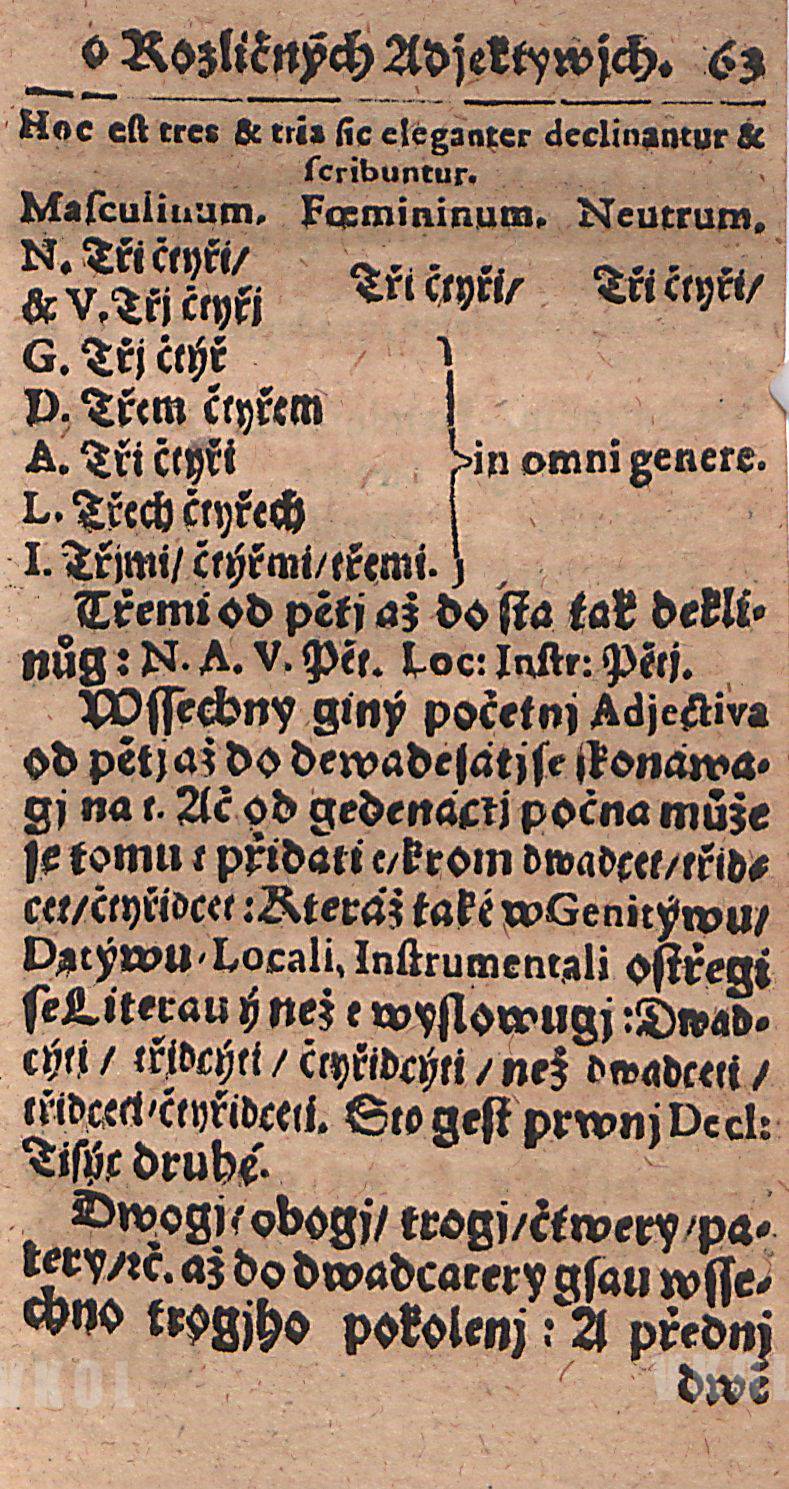 o Rozličných Adjektywjch. 63
Hoc eſt tres & tria ſic eleganter declinantur &
ſcribuntur.
Maſculinum. Fœmininum. Neutrum.
N. Tři čtyři/
& V. Třj čtyřj
Tři čtyři/ Tři čtyři/
G. Třj čtýř
D. Třem čtyřem
A. Tři čtyři
L. Třech čtyřech
I. Třjmi/ čtýřmi/třemi.
in omni genere.
Třemi od pětj až do ſta tak dekli-
nůg: N. A. V. Pět. Loc: Inſtr: Pětj.
Wſſechny giný početnj Adjectiva
od pětj až do dewadeſátj ſe ſkonáwa-
gj na t. Ač od gedenáctj počna může
ſe tomu t přidati e/krom dwadcet/třid-
cet/čtyřidcet: Kteráž také w Genitýwu/
Datýwu, Locali, Inſtrumentali oſtřegi
ſe Literau ý než e wyſlowugj: Dwad-
cýti / třidcýti / čtyřidcýti / než dwadceti /
třidceti/čtyřidceti. Sto geſt prwnj Decl:
Tiſýc druhé.
Dwogj/ obogj/ trogj/čtwery/pa-
tery/ꝛč. až do dwadcatery gſau wſſe-
chno trogjho pokolenj: A přednj
dwě
VKOL VKOL